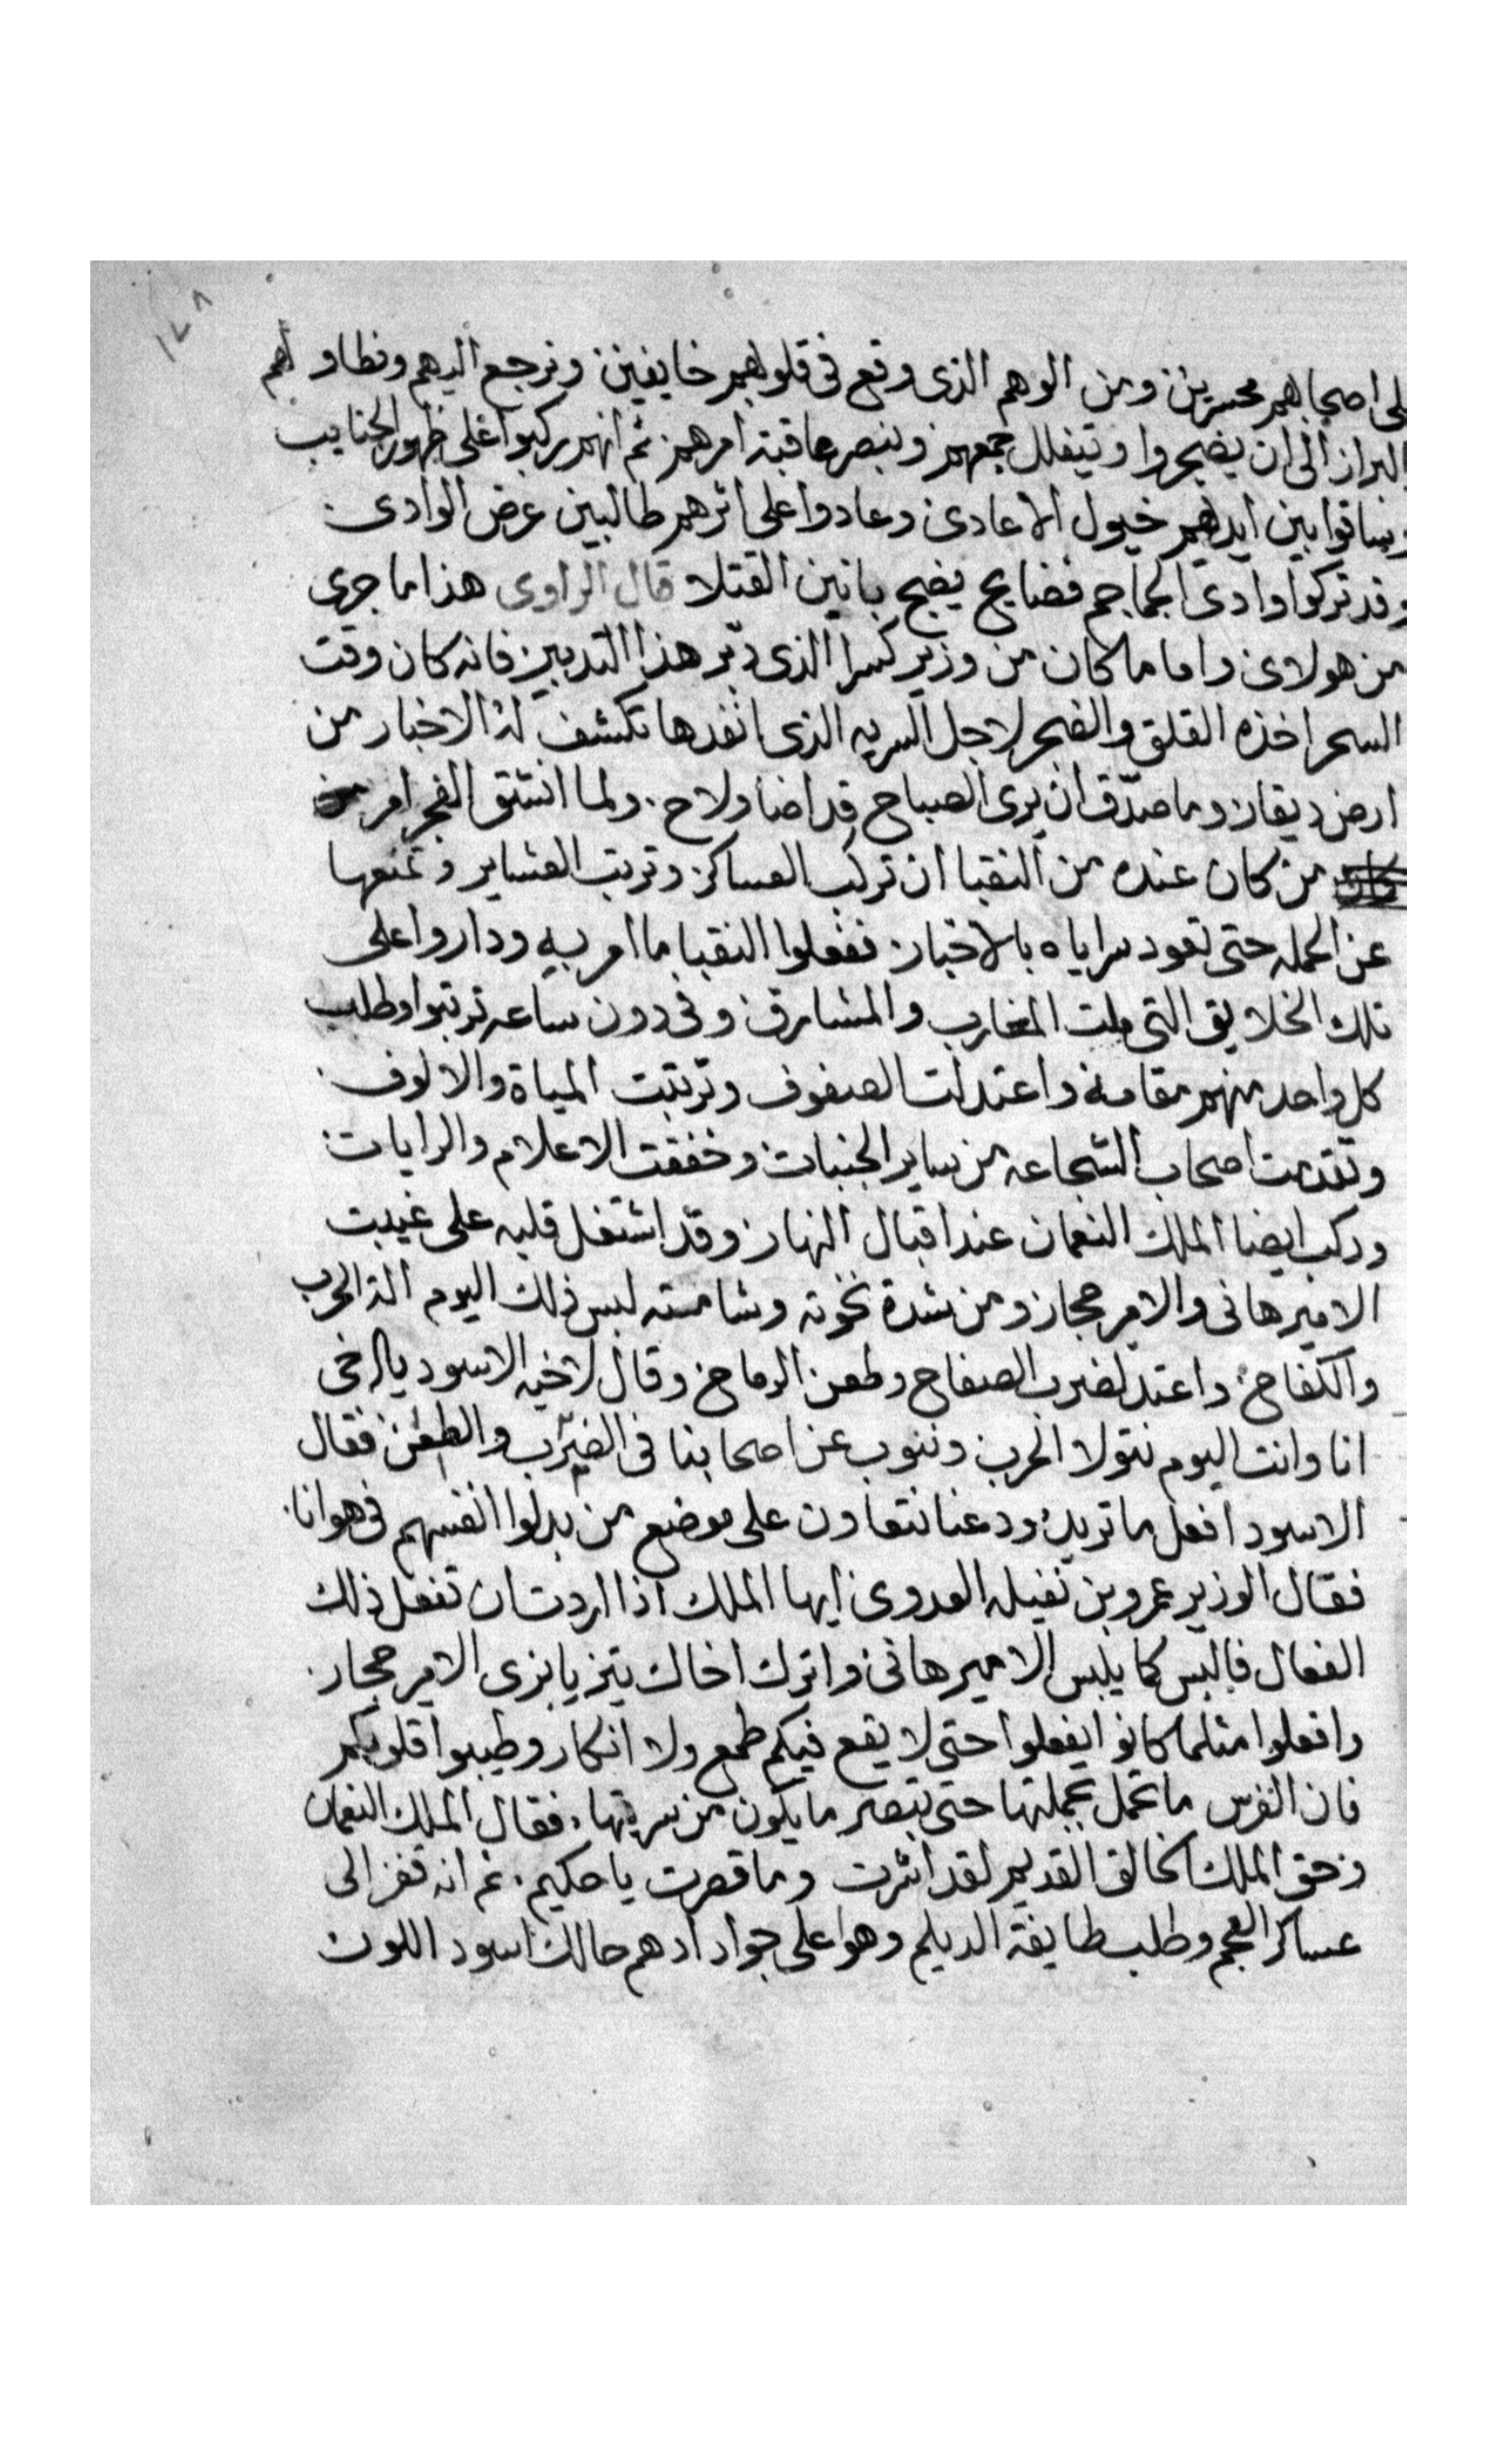 ١٢٨
على اصحابهم محسرين ومن الوهم الذى وقع فى قلوبهم خايفين ونرجع اليهم ونطاولهم
البراز الى ان يضجروا وتيفلل جمعهم ونبصر عاقبة امرهم ثم انهم ركبوا على ظهور الجنايب
وساقوا بين ايديهم خيول الاعادى وعادوا على اثرهم طالبين عرض الوادى
وقد تركوا وادى الجماجم فضايح يضج بانين القتلا قال الراوى هذا ما جرى
من هولاى واما ما كان من وزير كسرا الذى دبّر هذا التدبير فانه كان وقت
السحر اخذه القلق والضجر لاجل السريه الذى انفدها تكشف له الاخبار من
ارض ديقار وما صدّق ان يرى الصباح قد اضا ولاح ولما انشق الفجر امر
من كان عنده من النقبا ان تركب العساكر وترتب العشاير وتمنعها
عن الحمله حتى تعود سراياه بالاخبار ففعلوا النقبا ما امر به وداروا على
تلك الخلايق التى ملت المغارب والمشارق وفى دون ساعه ترتبوا وطلب
كل واحد منهم مقامه واعتدلت الصفوف وترتبت المياة والالوف
وتقدمت اصحاب الشجاعه من ساير الجنبات وخفقت الاعلام والرايات
وركب ايضا الملك النعمان عند اقبال النهار وقد اشتغل قلبه على غيبت
الامير هانى والامير حجار ومن شدة نخوته وشامته لبس ذلك اليوم الة الحرب
والكفاح واعتد لضرب الصفاح وطعن الرماح وقال لاخيه الاسود يا اخى
انا وانت اليوم نتولا الحرب وننوب عن اصحابنا فى الضرب والطعن فقال
الاسود افعل ما تريد ودعنا نتعاون على موضع من بدلوا انفسهم فى هوانا
فقال الوزير عمرو بن نفيله العدوى ايها الملك اذا اردت ان تفعل ذلك
الفعال فالبس كما يلبس الامير هانى واترك اخاك يتزيا بزى الامير حجار
وافعلوا مثلما كانوا يفعلوا حتى لا يقع فيكم طمع ولا انكار وطيبوا قلوبكم
فان الفرس ما تحمل بجملتها حتى تبصر ما يكون من سريتها فقال الملك النعمان
وحق الملك الخالق القديم لقد اشرت وما قصرت يا حكيم ثم انه قفز الى
عساكر العجم وطلب طايفة الديلم وهو على جواد ادهم حالك اسود اللون